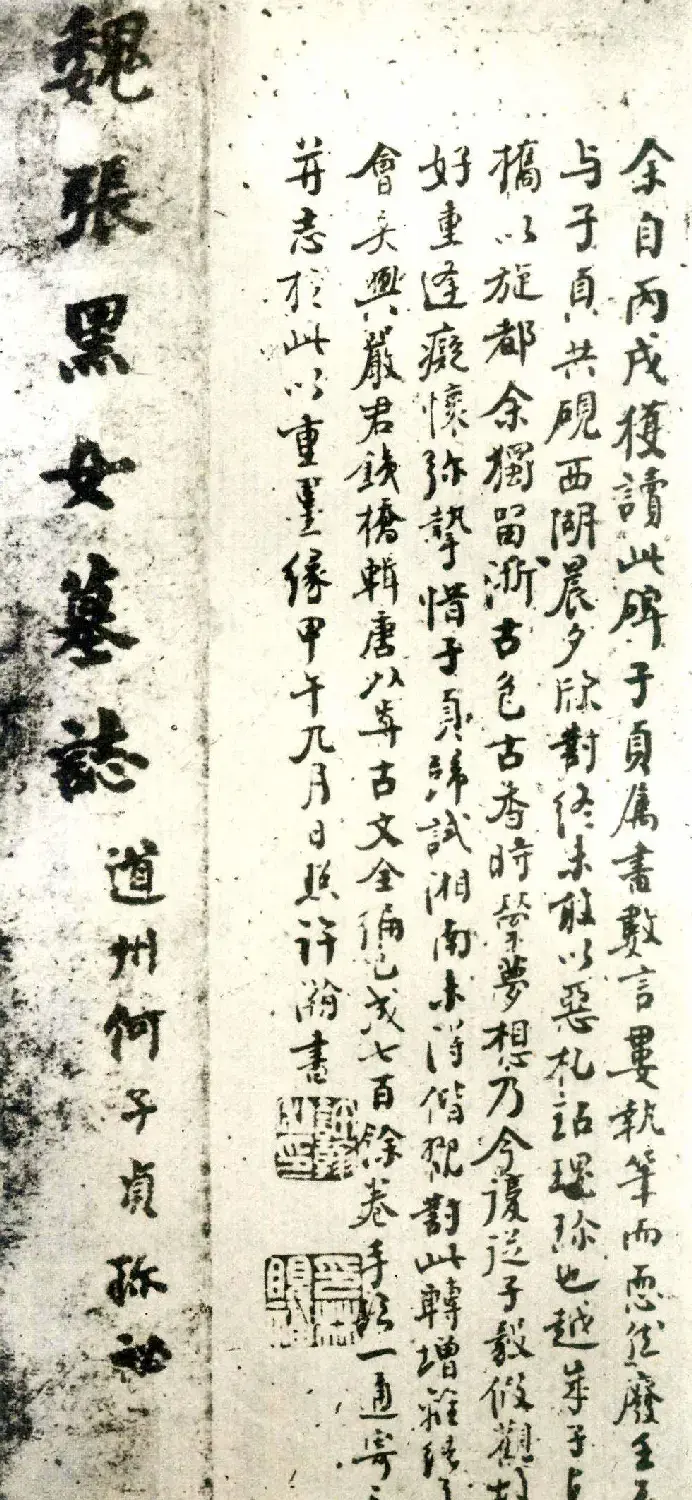 余自丙戌獲讀此碑子貞屬書數言屢執筆而恧然廢至
与子貞共硯西湖晨夕除對終未敢以惡札玷瑰珍也越年子貞
橋以旋都余獨留浙古色古香時縈夢想乃今復從子毅假觀
好重逢癡懷弥摯惜子貞歸試湘南未得偕觀對此轉增
會吴興嚴君銕橋輯唐以前古文全編已成七百餘卷手一通寄
并志於此以重墨緣甲午九月日照許瀚書
魏張黑女墓誌
道州何子貞珎祕